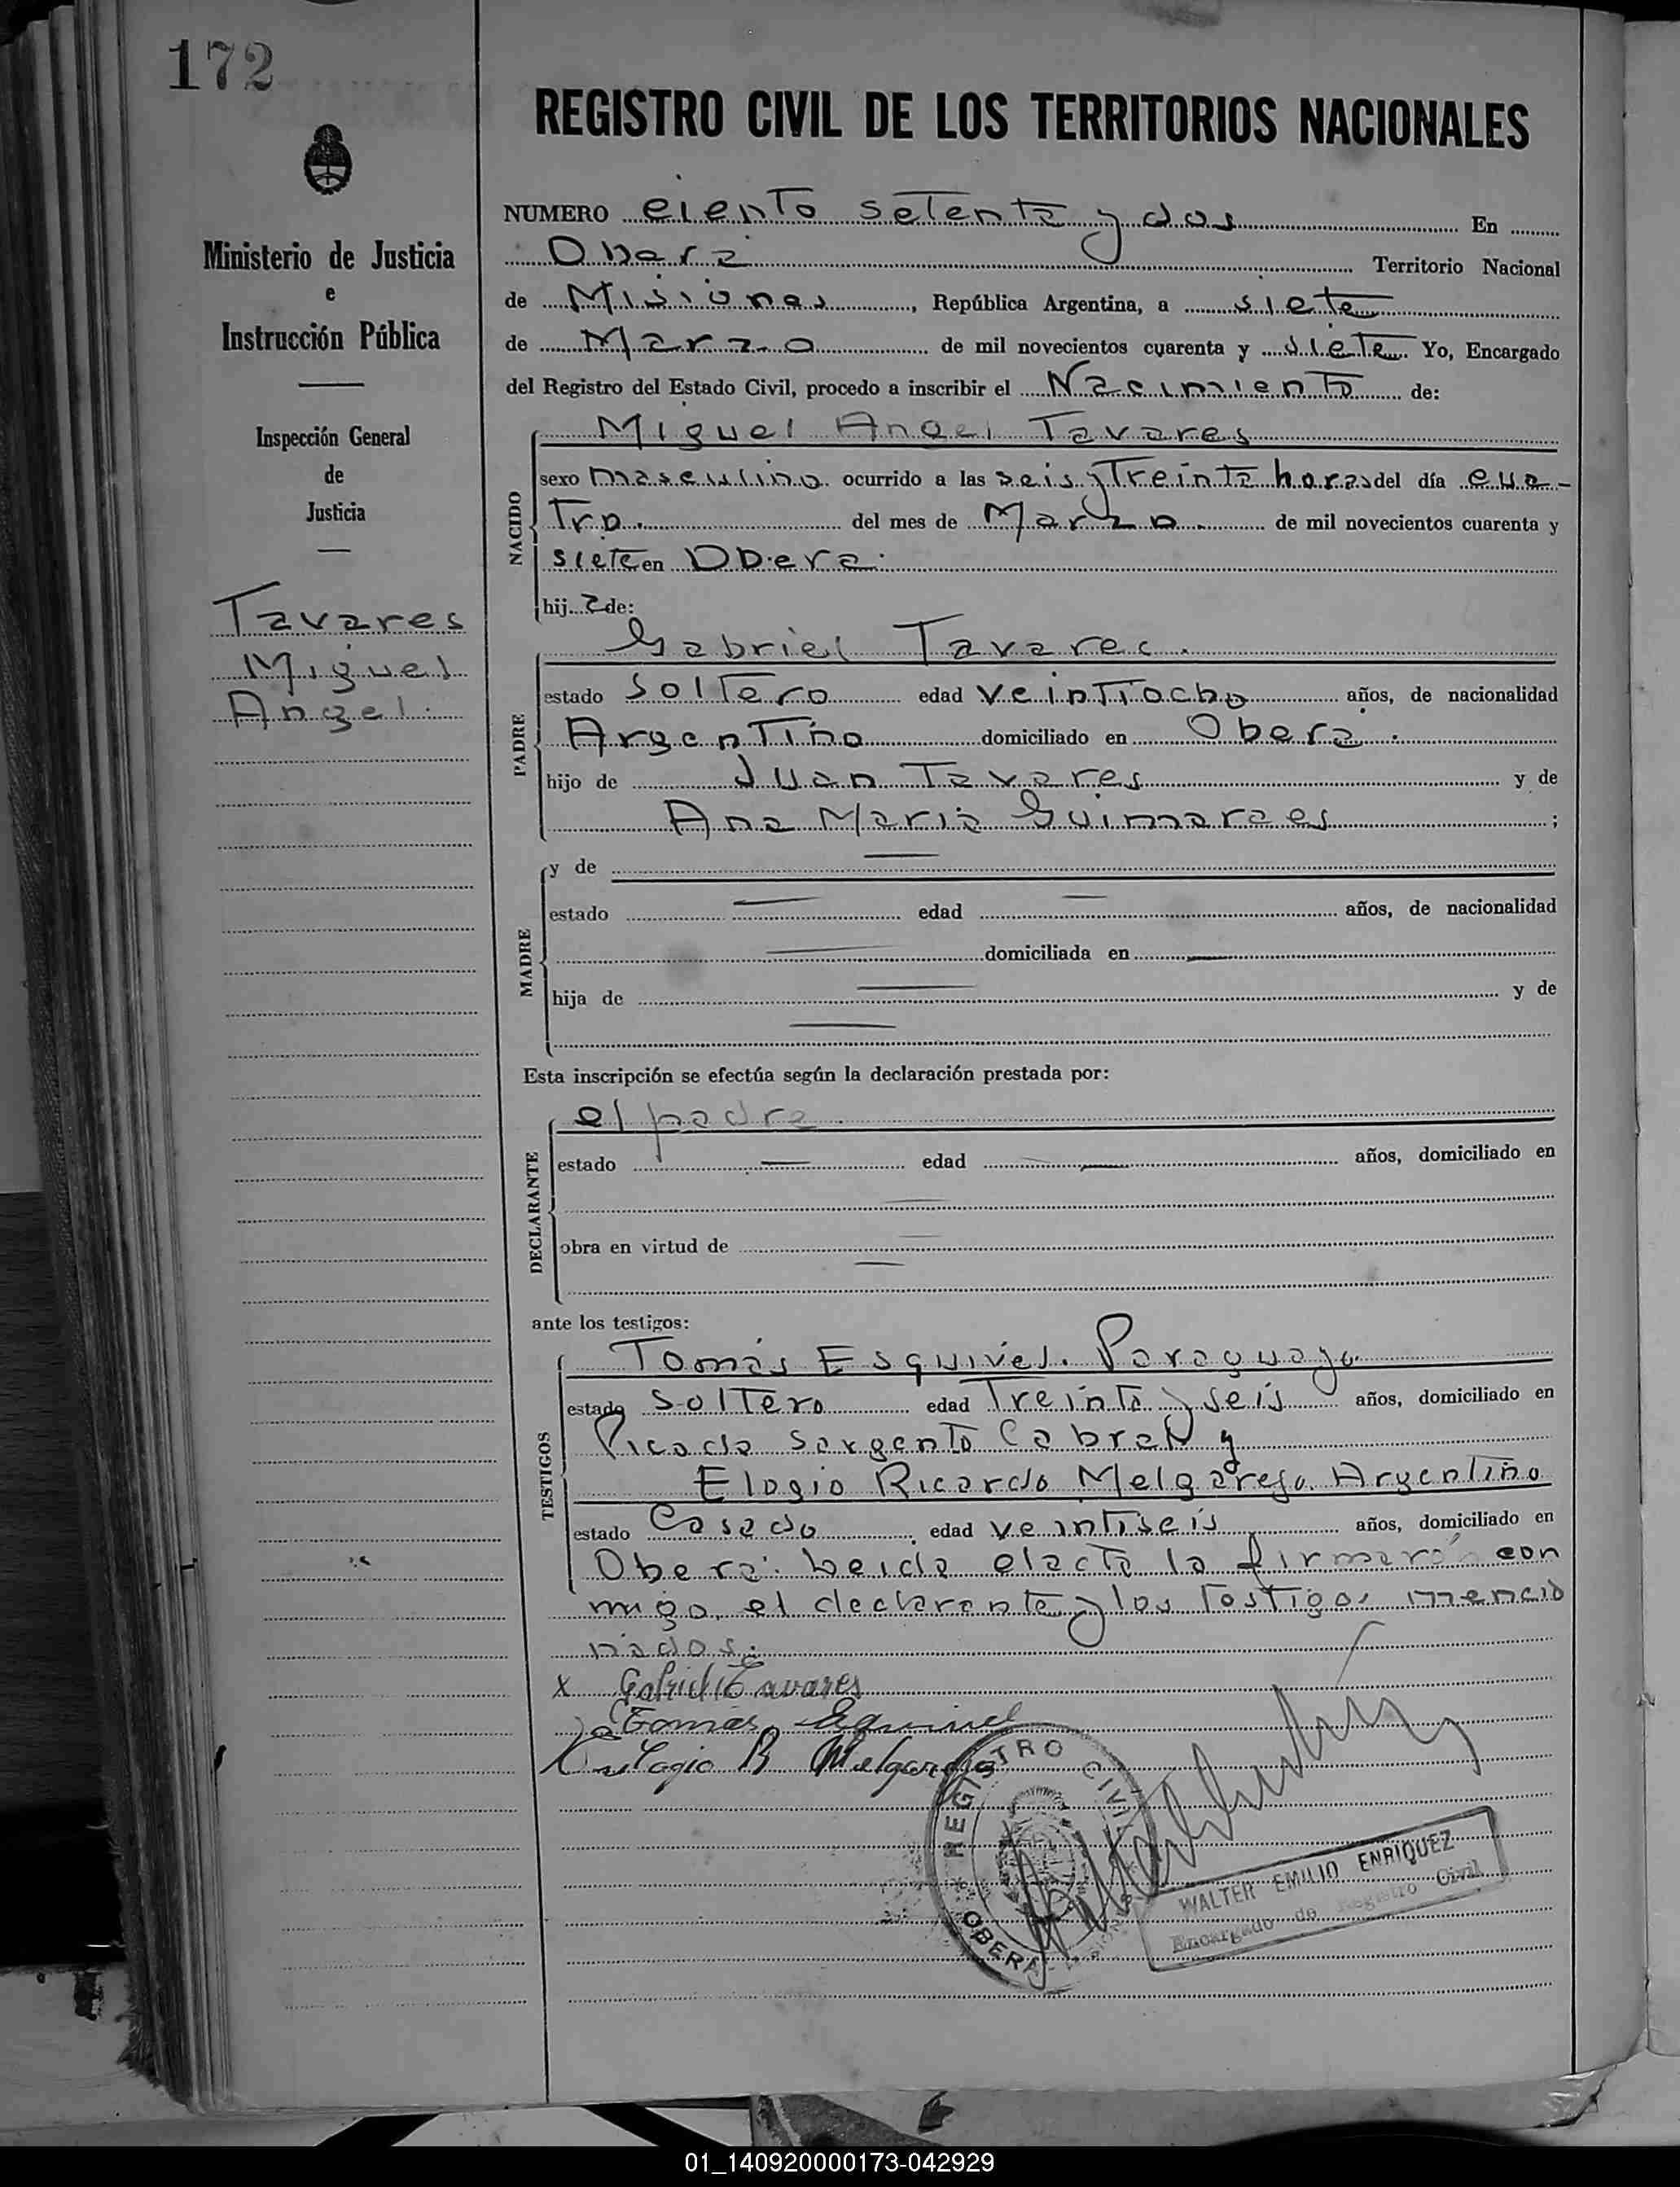 172
REGISTRO CIVIL DE LOS TERRITORIOS NACIONALES
Ministerio de Justicia
e
Instrucción Pública
Inspección General
de
Justicia
Tavares
Miguel
Angel.
NUMERO ciento setenta y dos En
Oberá Territorio Nacional
de Misiones, República Argentina, a siete
de Marzo de mil novecientos cuarenta y siete Yo, Encargado
del Registro del Estado Civil, procedo a inscribir el Nacimiento de:
NACIDO
Miguel Angel Tavares
sexo masculino ocurrido a las seis y Treinta horas del día cua-
Tro. del mes de Marzo. de mil novecientos cuarenta y
siete en Obera.
hij de:
PADRE
Gabriel Tavares.
estado Soltero edad veintiocho años, de nacionalidad
Argentino domiciliado en Oberá.
hijo de Juan Tavares y de
Ana Maria Guimaraes ;
MADRE
y de —
estado — edad — años, de nacionalidad
— domiciliada en —
hija de — y de
—
Esta inscripción se efectúa según la declaración prestada por:
DECLARANTE
el padre.
estado — edad — años, domiciliado en
—
obra en virtud de —
—
ante los testigos:
TESTIGOS
Tomás Esquivel. Paraguayo
estado soltero edad Treinta y seis años, domiciliado en
Picada Sargento Cabral y
Elogio Ricardo Melgarejo. Argentino
estado Casado edad veintiseis años, domiciliado en
Obera. Leida el acta la firmarón con
migo, el declarante y los Testigos mencio
nados.
x Gabriel Tavares
Tomás Esquivel
Eulogio R Melgarejo
REGISTRO CIVIL
OBERA
WALTER EMILIO ENRIQUEZ
Encargado de Registro Civil
01_140920000173-042929